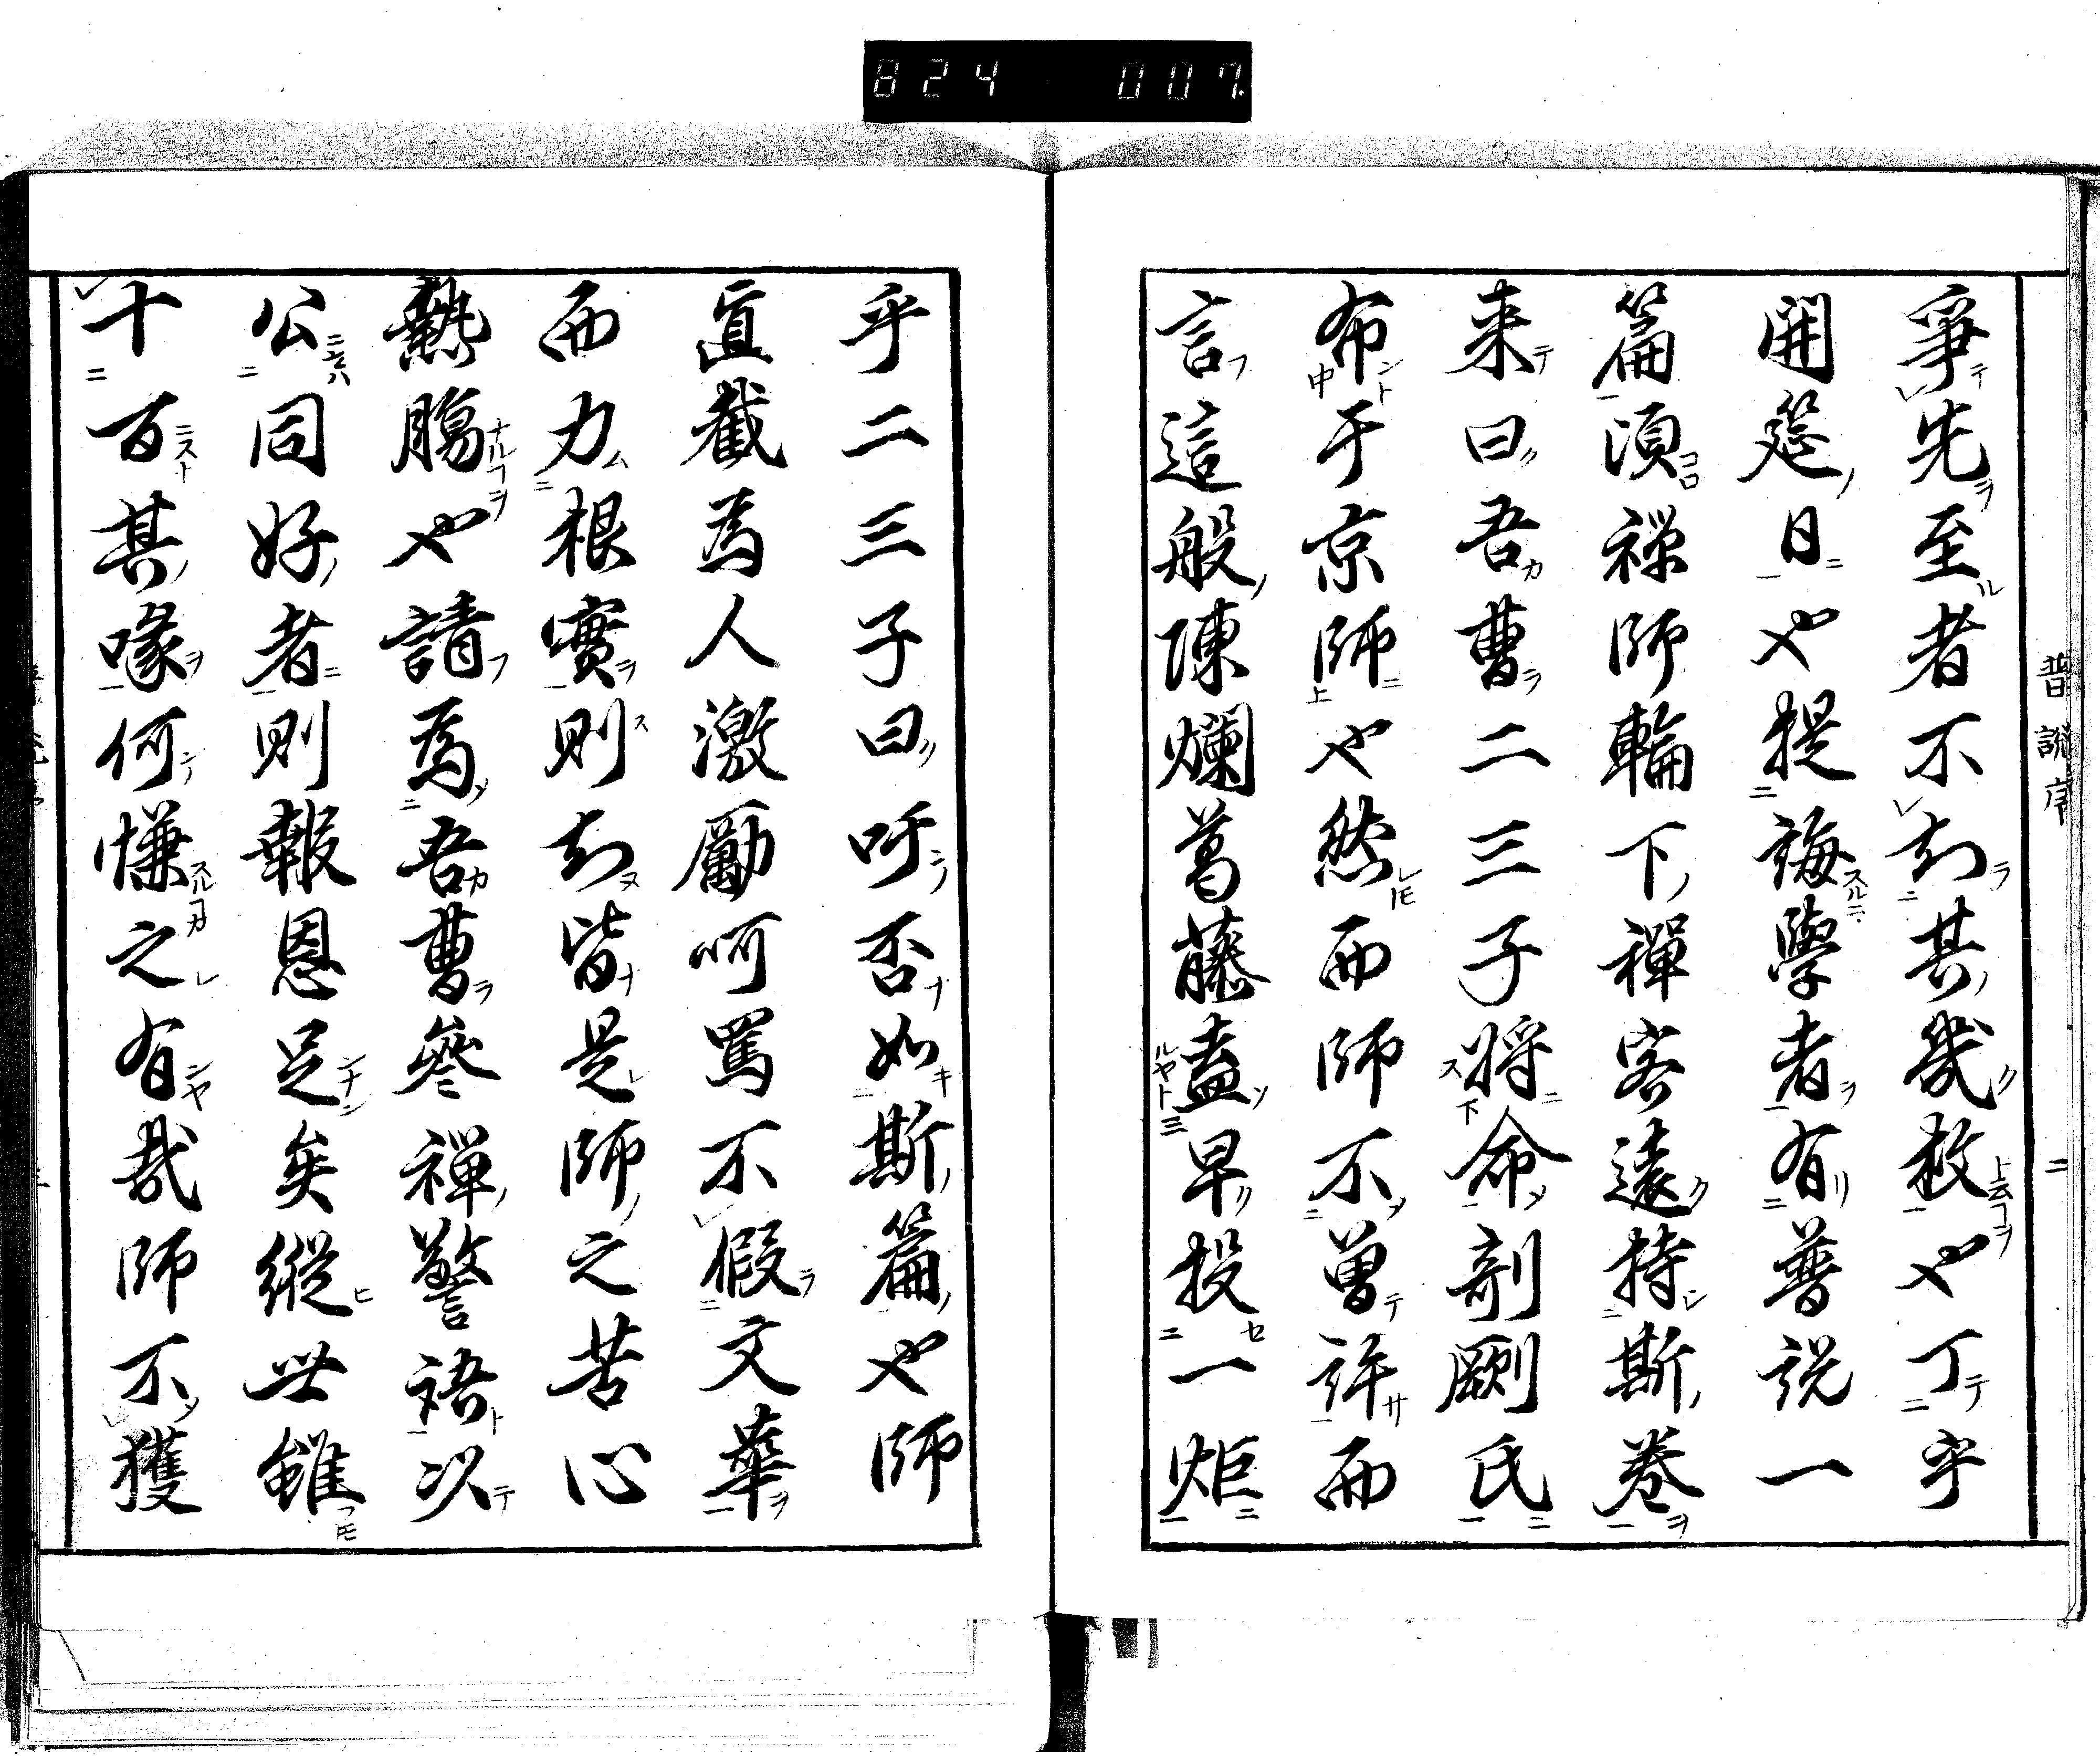 824 007
普說序 二
爭先至者不知其幾数也丁乎
開筵日也提誨學者有普説一
篇頃禅師輪下禪客遠持斯巻
来曰吾曹二三子将命剞劂氏
布于京師也然而師不曽許而
言這般陳爛葛藤盍早投一炬
乎二三子曰吁否如斯篇也師
直截為人激勵呵罵不假文華
而力根實則知皆是師之苦心
熱腸也請為吾曹参禪警語以
公同好者則報恩足矣縱世雖
十百其喙何慊之有哉師不獲